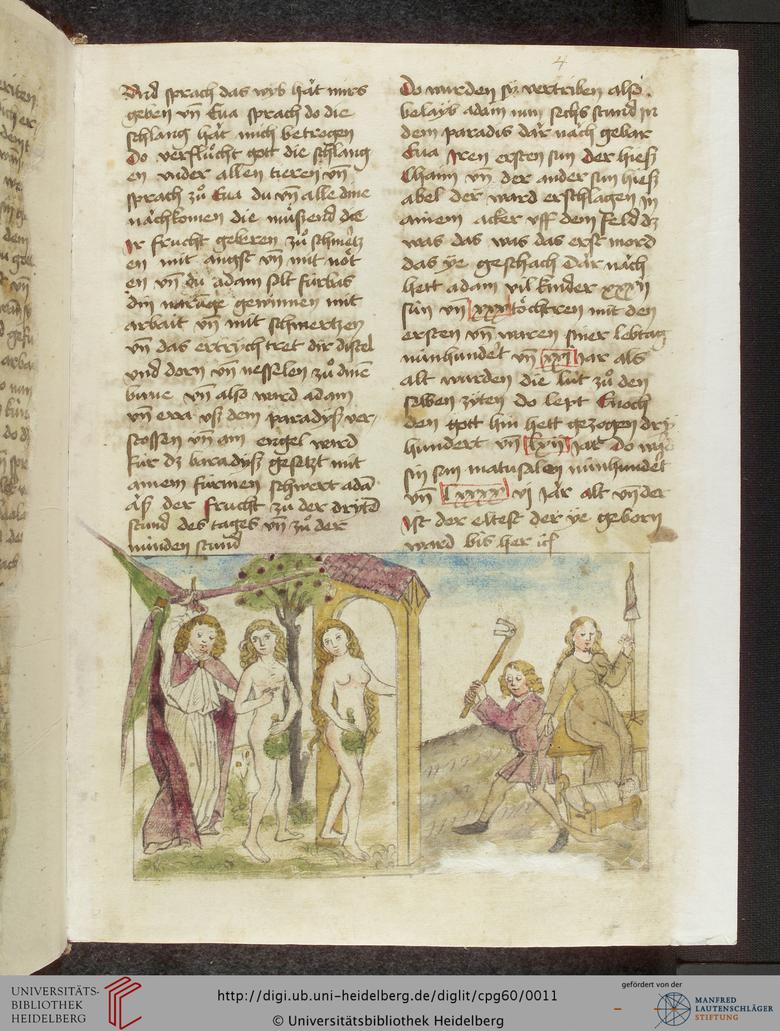 4
Und sprach das wib hät mirs
geben vn̄ Eua sprach do die
schlang hät mich betrogen
Do verflůcht gott die schlang
en vnder allen tieren vn̄
sprach zů Eua du vn̄ alle dine
nächkomen die můssend die
ir frucht geberen zů schmetz
en mit angst vn̄ mit nöt
en vn̄ du adam solt fürbas
din narūge gewinnen mit
arbait vn̄ mit schmertzen
vn̄ das ertrych tret dir distel
vnd dorn vn̄ nesselen zů dinē
buwe vn̄ also ward adam
vn̄ eva vß dem paradyß ver
stossen vn̄ am engel ward
für dz baradyß gesetzt mit
ainem fürinen schwert adā
äß der frucht zů der drytē
stund des tages vn̄ zů der
nünden stund
Do wurden sy vertriben also
belayb adam nun sechs stund in
dem paradis där näch gebar
Eua iren ersten sun der hieß
Chain vn̄ der ander sun hieß
abel der ward erschlagen in
ainem acker vff dem feld dz
was das was das erst mord
das ye geschach där näch
hett adam vil kinder xxxij
sün vn̄ xxx töchtren mit den
ersten vn̄ waren siner lebtag
nünhundet vn̄ xxx jar als
alt wurden die lüt zů den
selben zyten do lept Enoch
den gott hin hett gezogen dry
hundert vn̄ lxv jar Do was
sin sun matusalen nünhundet
vn̄ lxxxx vj jär alt vn̄ der
ist der eltest der ye geborn
ward bis her
UNIVERSITÄTS-
BIBLIOTHEK
HEIDELBERG
http://digi.ub.uni-heidelberg.de/diglit/cpg60/0011
© Universitätsbibliothek Heidelberg
gefördert von der
MANFRED
LAUTENSCHLÄGER
STIFTUNG